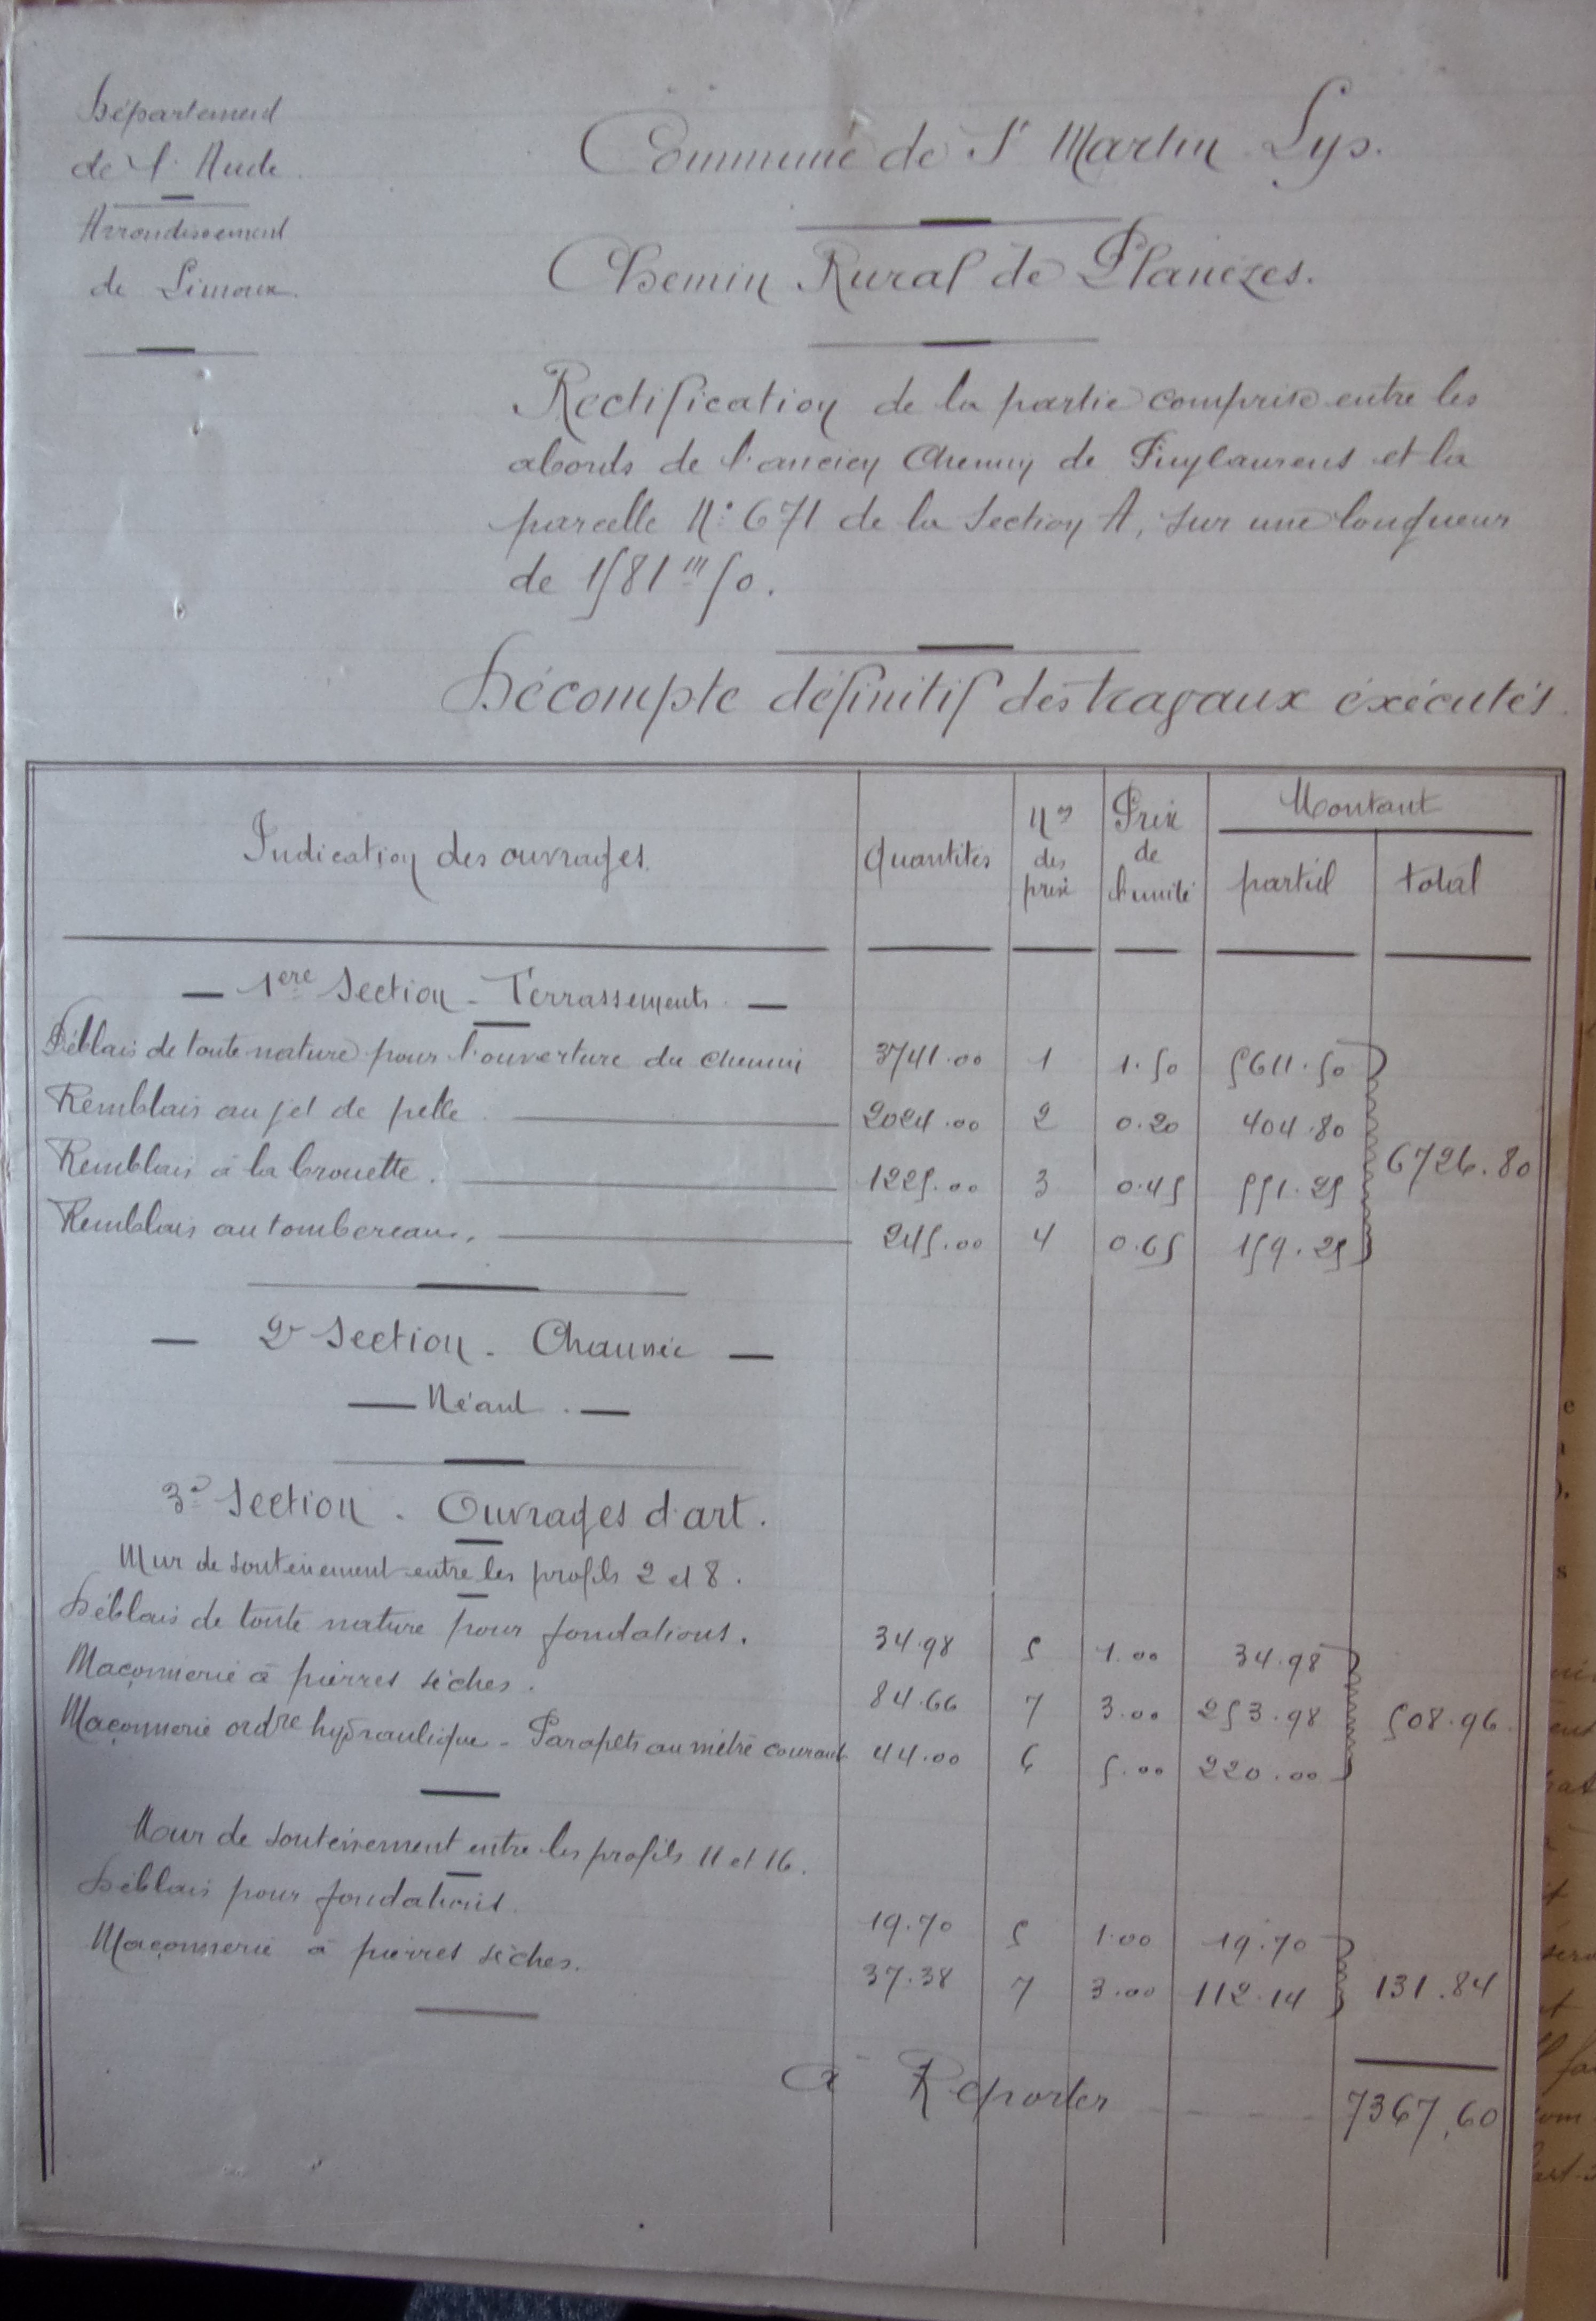 Département
de l'Aude
Arrondissement
de Limoux.
Commune de St Martin Lys.
Chemin Rural de Planèzes.
Rectification de la partie comprise entre les
abords de l'ancien chemin de Puylaurens et la
parcelle N° 671 de la Section A, sur une longueur
de 1581m50.
Décompte définitif des travaux éxécutés
Indication des ouvrages. Quantités Nos des prix Prix de l'unité Montant partiel total
— 1ere Section - Terrassements —
Déblais de toute nature pour l'ouverture du chemin 3741.00 1 1.50 5611.50
Remblais au jet de pelle 2024.00 2 0.20 404.80
6726.80
Remblais à la brouette. 1225.00 3 0.45 551.25
Remblais au tombereau. 245.00 4 0.65 159.25
— 2e Section - Chaussée —
— Néant. —
3e Section. Ouvrages d'art.
Mur de soutènement entre les profils 2 et 8.
Déblais de toute nature pour fondations. 34.98 5 1.00 34.98
Maçonnerie à pierres sèches. 84.66 7 3.00 253.98 508.96
Maçonnerie ordre hydraulique - Parapets au mètre courant 44.00 6 5.00 220.00
Mur de soutènement entre les profils 11 et 16.
Déblais pour fondations. 19.70 5 1.00 19.70
Maçonnerie à pierres sèches. 37.38 7 3.00 112.14 131.84
à Reporter 7367,60